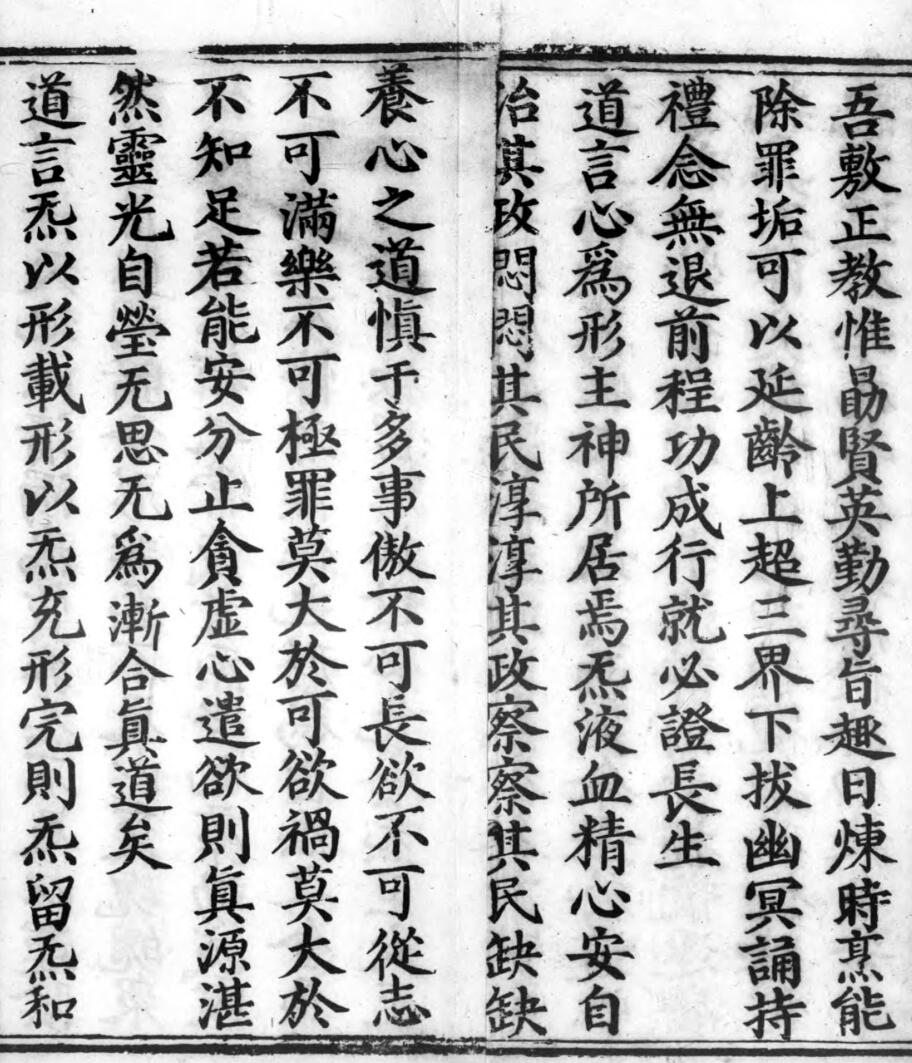 吾敷正教惟勗賢英勤尋旨趣日煉時烹能
除罪垢可以延齡上超三界下拔幽冥誦持
禮念無退前程功成行就必證長生
道言心爲形主神所居焉炁液血精心安自
治其政悶悶其民淳淳其政察察其民缺缺
養心之道愼于多事傲不可長欲不可從志
不可滿樂不可極罪莫大於可欲禍莫大於
不知足若能安分止貪虛心遣欲則眞源湛
然靈光自瑩无思无爲漸合眞道矣
道言炁以形載形以炁充形完則炁留炁和